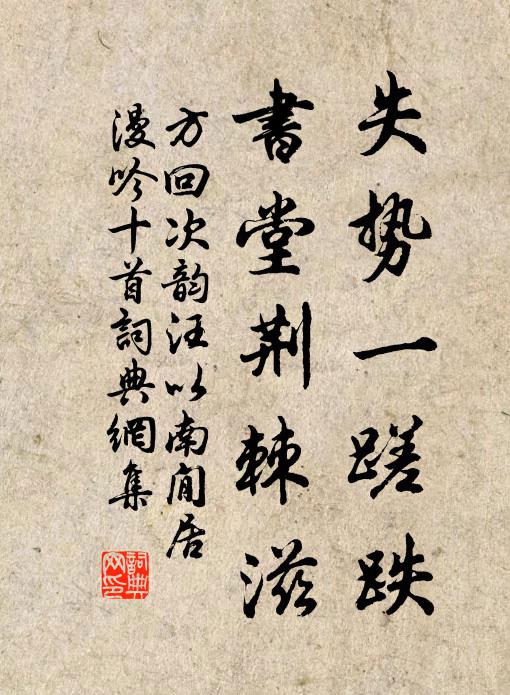 失势一蹉跌
書堂荆棘滋
方回次韵汪以南閒居
漫吟十首詞典網集
詞典网印